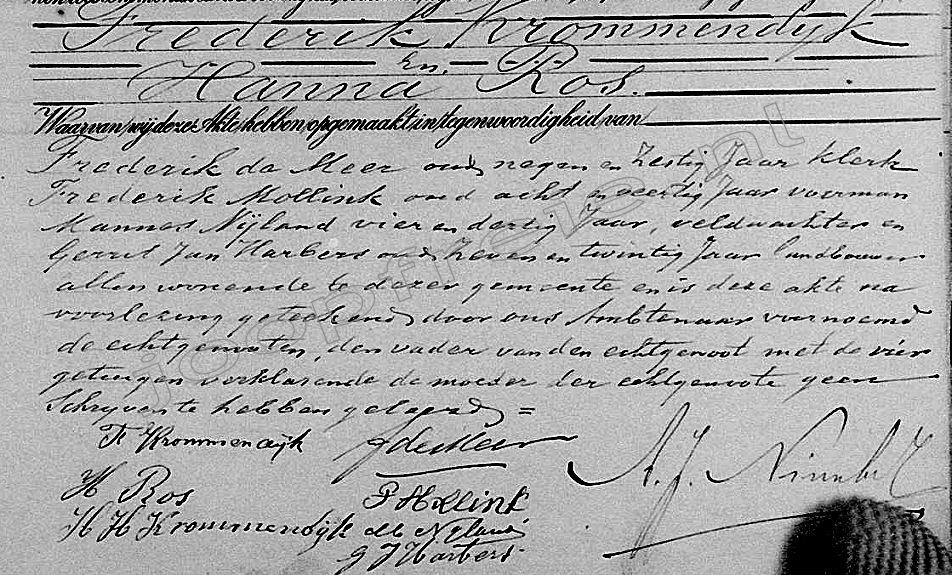 Frederik Krommendyk
En
Hanna Ros.
Waarvan wij deze Akte hebben opgemaakt, in tegenwoordigheid van
Frederik de Meer oud negen en zestig Jaar klerk
Frederik Mollink oud acht en veertig Jaar voerman
Mannes Nijland vier en dertig Jaar, veldwachter en
Gerrit Jan Harbers oud zeven en twintig Jaar landbouwer
allen wonende te dezer gemeente en is deze akte na
voorlezing geteekend door ons Ambtenaar voornoemd
de echtgenooten, den vader van den echtgenoot met de vier
getuigen verklarende de moeder der echtgenoote geen
Schrijven te hebben geleerd =
F Krommendijk
F de Meer
A. J.
H Ros
F Mollink
H H Krommendijk
M Nijland
G J Harbers
joopfreie.nl